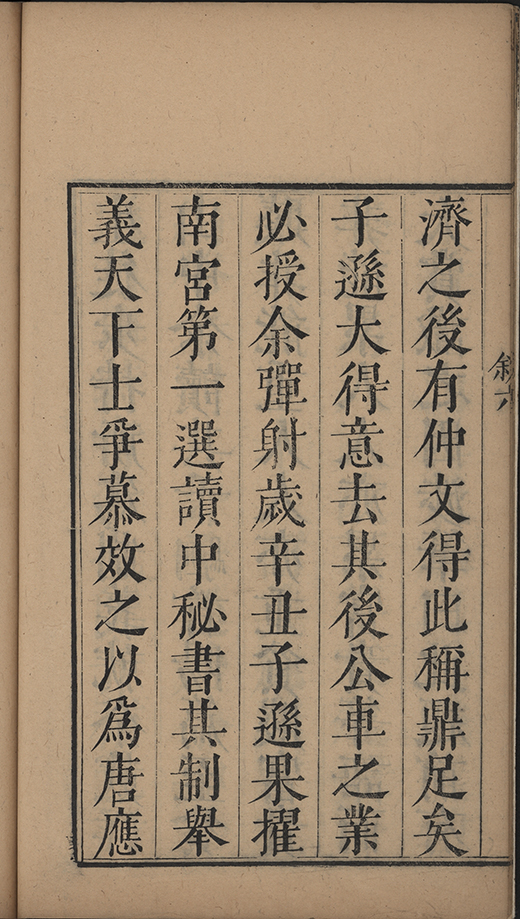 叙六
濟之後有仲文得此稱鼎足矣
子遜大得意去其後公車之業
必授余彈射歲辛丑子遜果擢
南宮第一選讀中秘書其制舉
義天下士爭慕效之以爲唐應